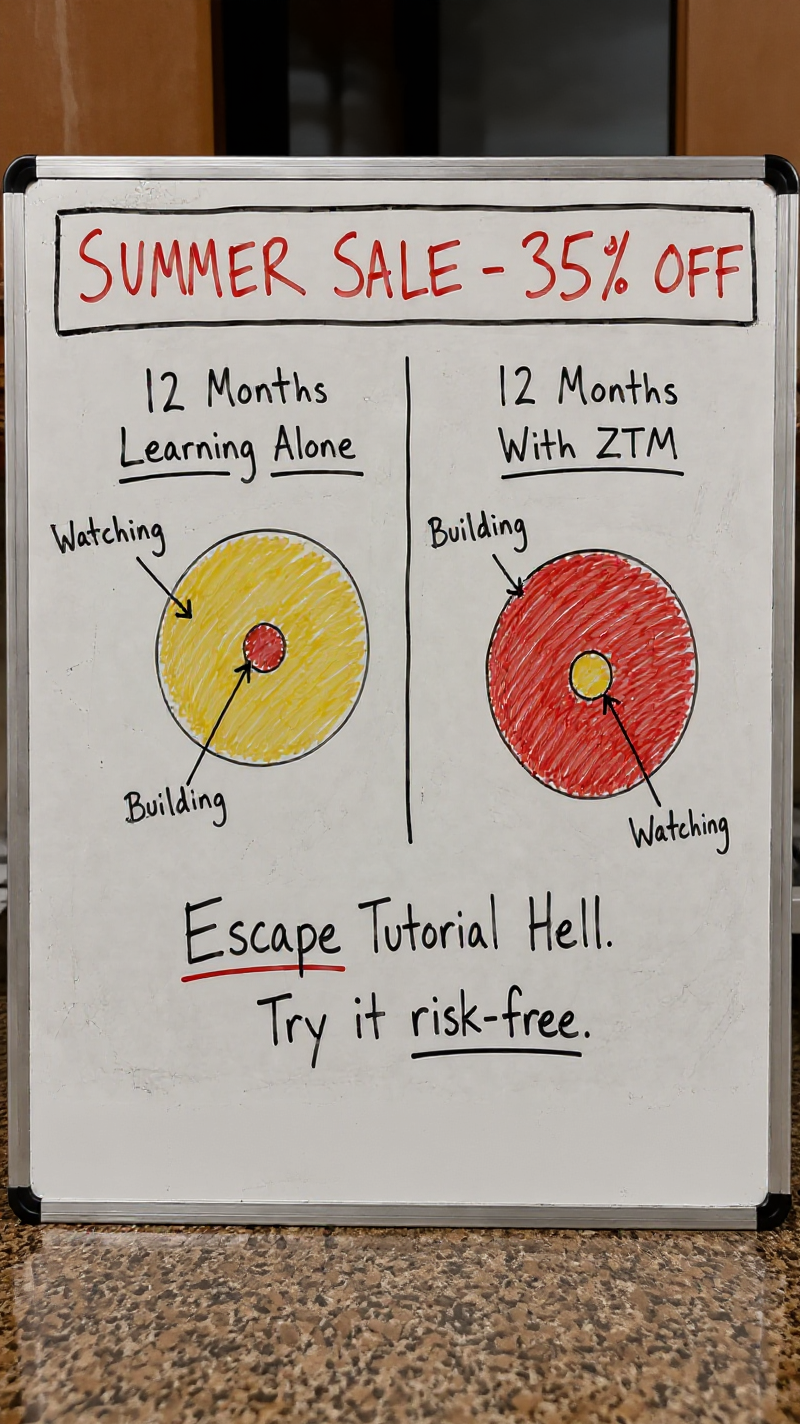 SUMMER SALE - 35% OFF
12 Months
Learning Alone
Watching
Building
12 Months
With ZTM
Building
Watching
Escape Tutorial Hell.
Try it risk-free.